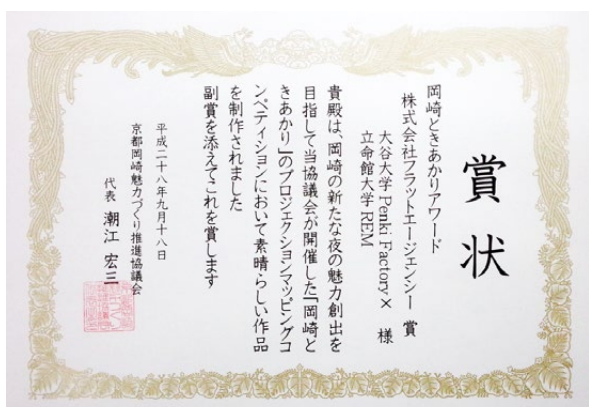 賞状
岡崎ときあかりアワード
株式会社フラットエージェンシー 賞
大谷大学 Penki Factory×
立命館大学 REM
様
貴殿は、岡崎の新たな夜の魅力創出を
目指して当協議会が開催した「岡崎と
きあかり」のプロジェクションマッピングコ
ンペティションにおいて素晴らしい作品
を制作されました
副賞を添えてこれを賞します
平成二十八年九月十八日
京都岡崎魅力づくり推進協議会
代表 潮江 宏三